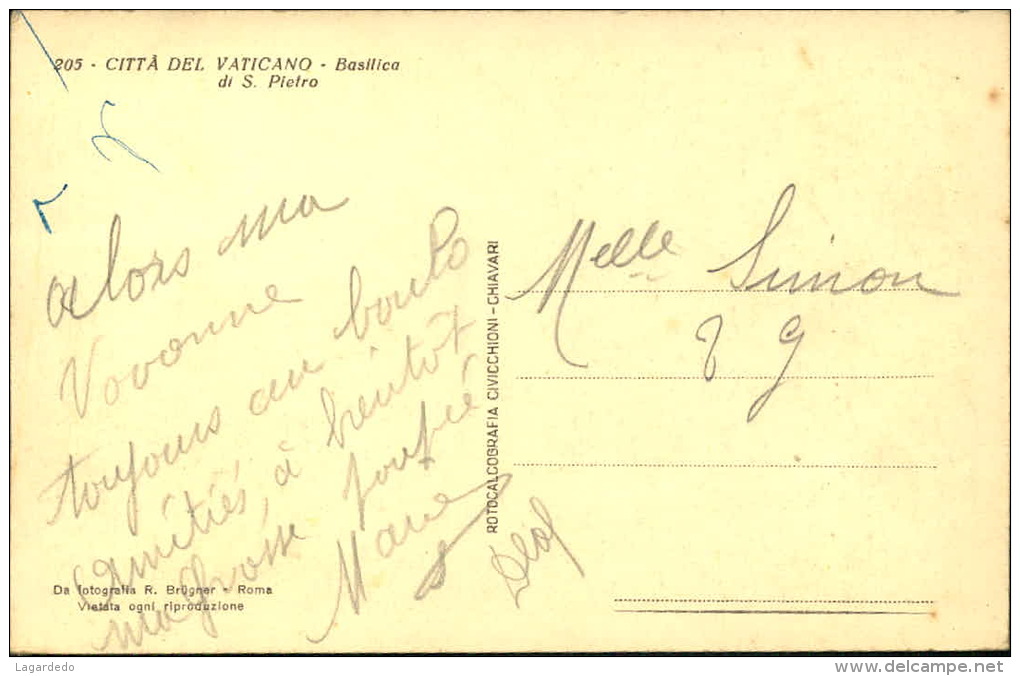 205 - CITTÀ DEL VATICANO - Basilica
di S. Pietro
alors ma
Vovonne
toujours au boulo
amitiés à bientôt
ma grosse
Marie
Melle Simon
ROTOCALCOGRAFIA CIVICCHIONI - CHIAVARI
Da fotografia R. Brügner - Roma
Vietata ogni riproduzione
Lagardedo
www.delcampe.net